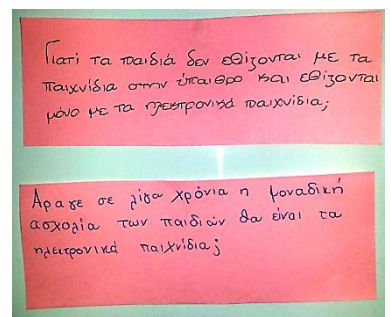 Γιατί τα παιδιά δεν εθίζονται με τα
παιχνίδια στην ύπαιθρο και εθίζονται
μόνο με τα ηλεκτρονικά παιχνίδια;
Άραγε σε λίγα χρόνια η μοναδική
ασχολία των παιδιών θα είναι τα
ηλεκτρονικά παιχνίδια;